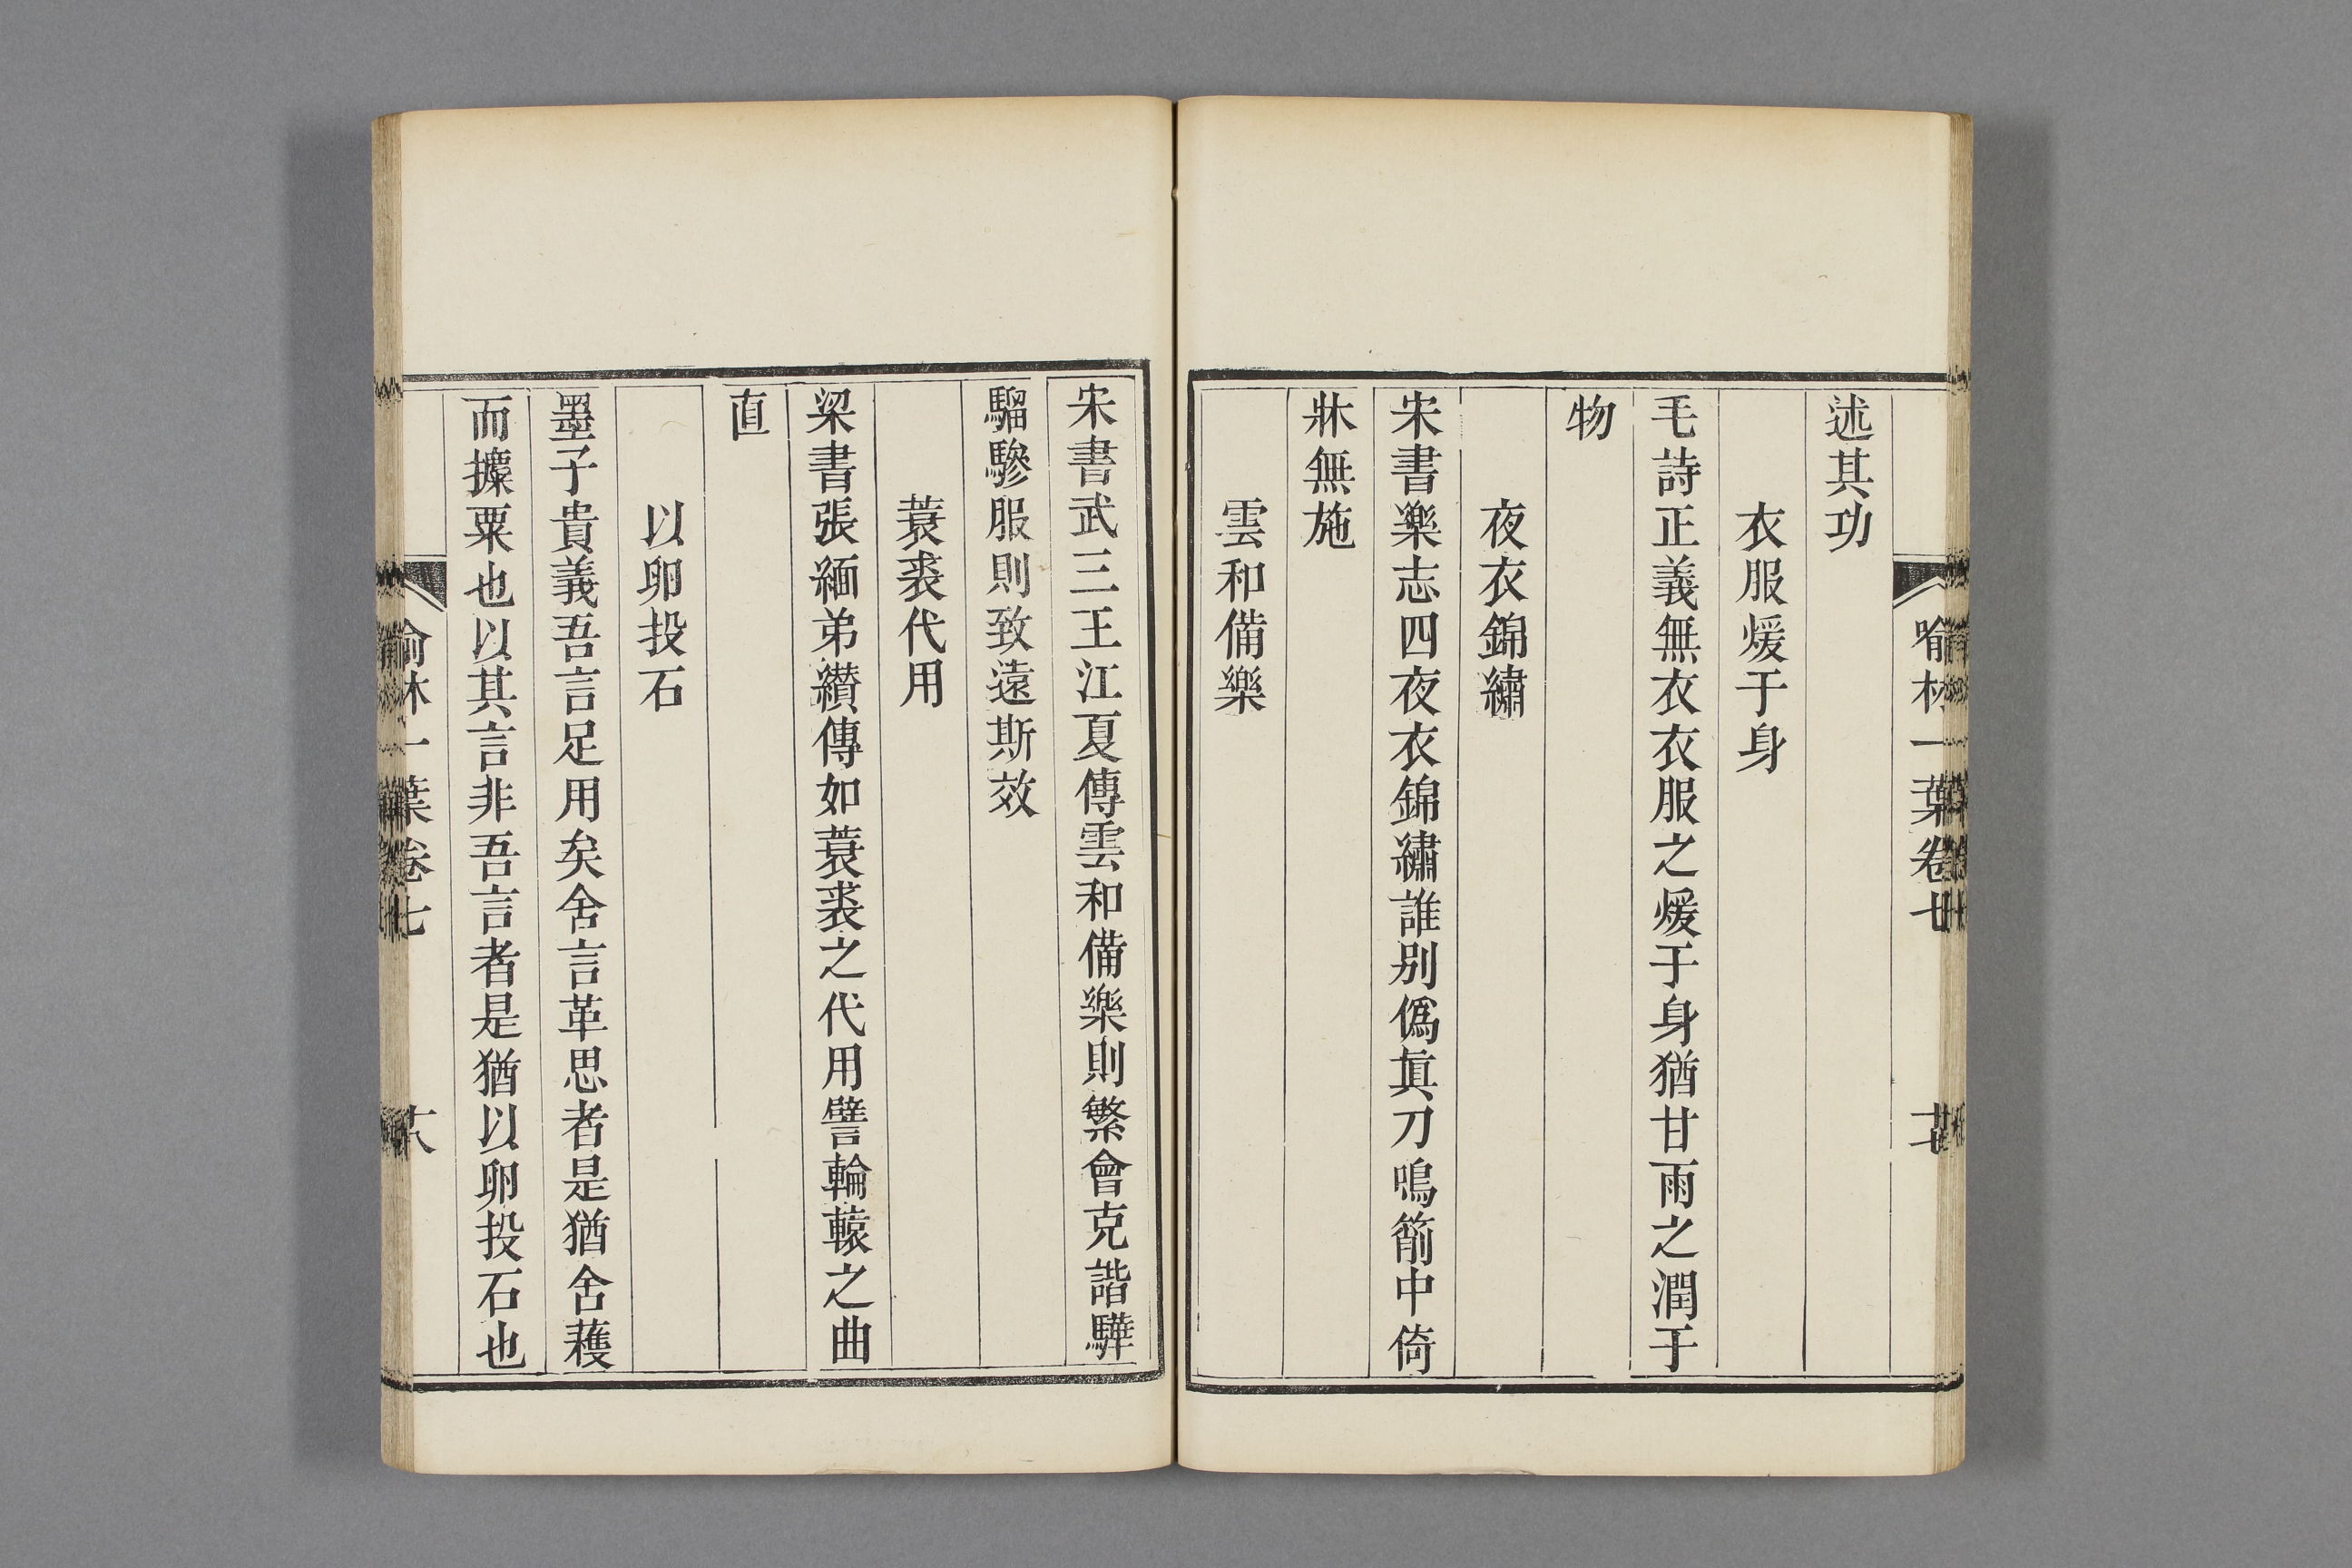 述其功
衣服煖于身
毛詩正義無衣衣服之煖于身猶甘雨之潤于
物
夜衣錦繡
宋書樂志四夜衣錦繡誰別僞眞刀鳴箾中倚
牀無施
雲和備樂
宋書武三王江夏傳雲和備樂則繁會克諧驊
騮驂服則致遠斯效
蓑裘代用
梁書張緬弟纘傳如蓑裘之代用譬輪轅之曲
直
以卵投石
墨子貴義吾言足用矣舍言革思者是猶舍蕵
而攈粟也以其言非吾言者是猶以卵投石也
喻林一葉卷七
十八